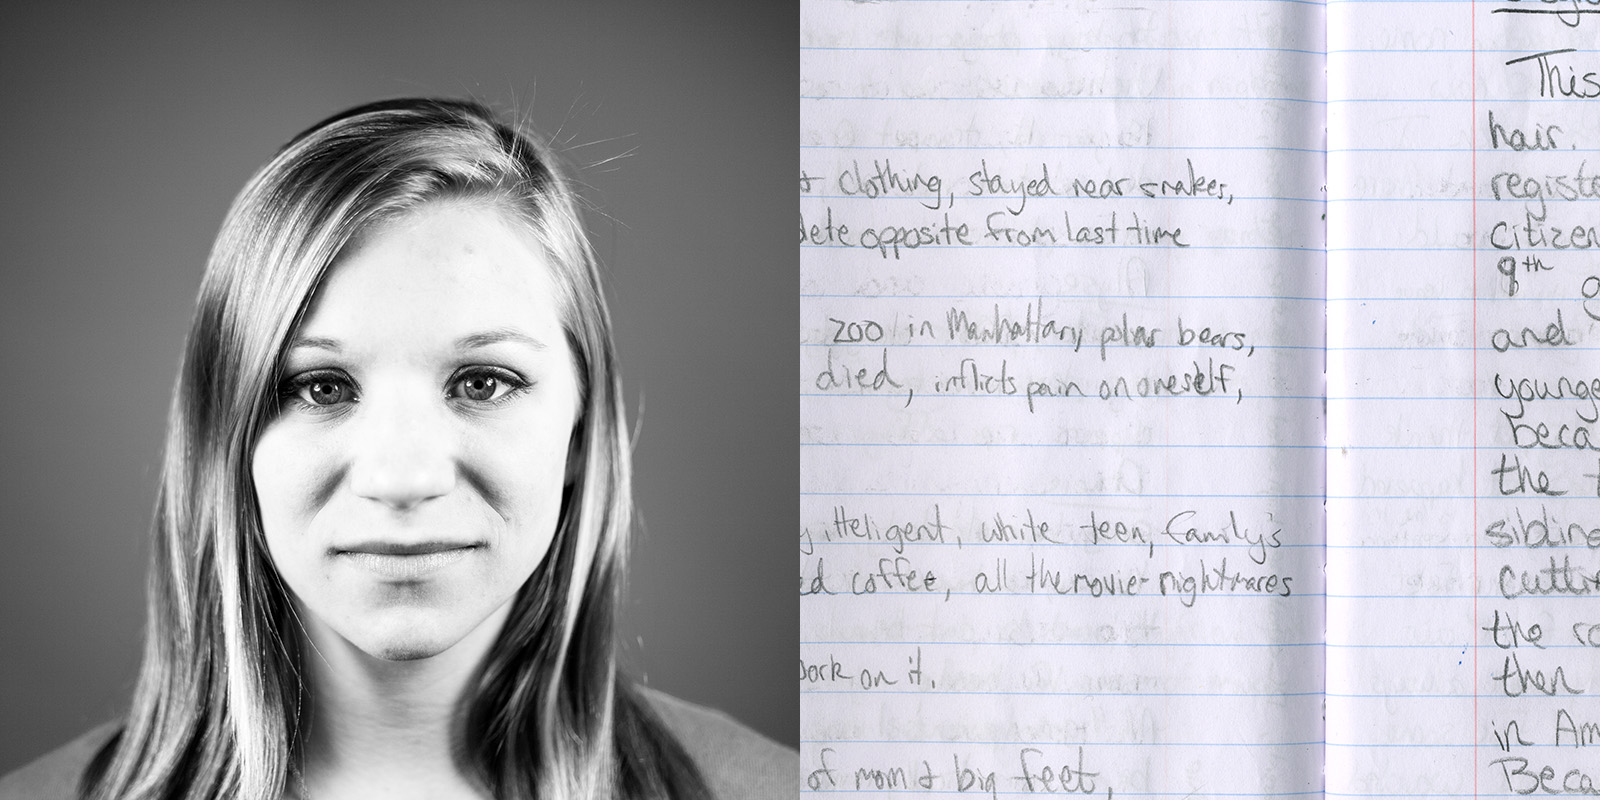 clothing, stayed near snakes,
opposite from last time
zoo in Manhattan, polar bears,
died, inflicts pain on oneself,
itteligent, white teen, family's
coffee, all the movie-nightmares
on it.
of mom & big feet,
This
hair.
citizen
9th
and
beca
the
the
then
in Am
Beca